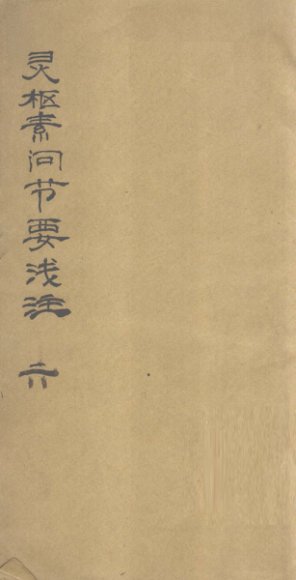 灵枢素问节要浅注 六